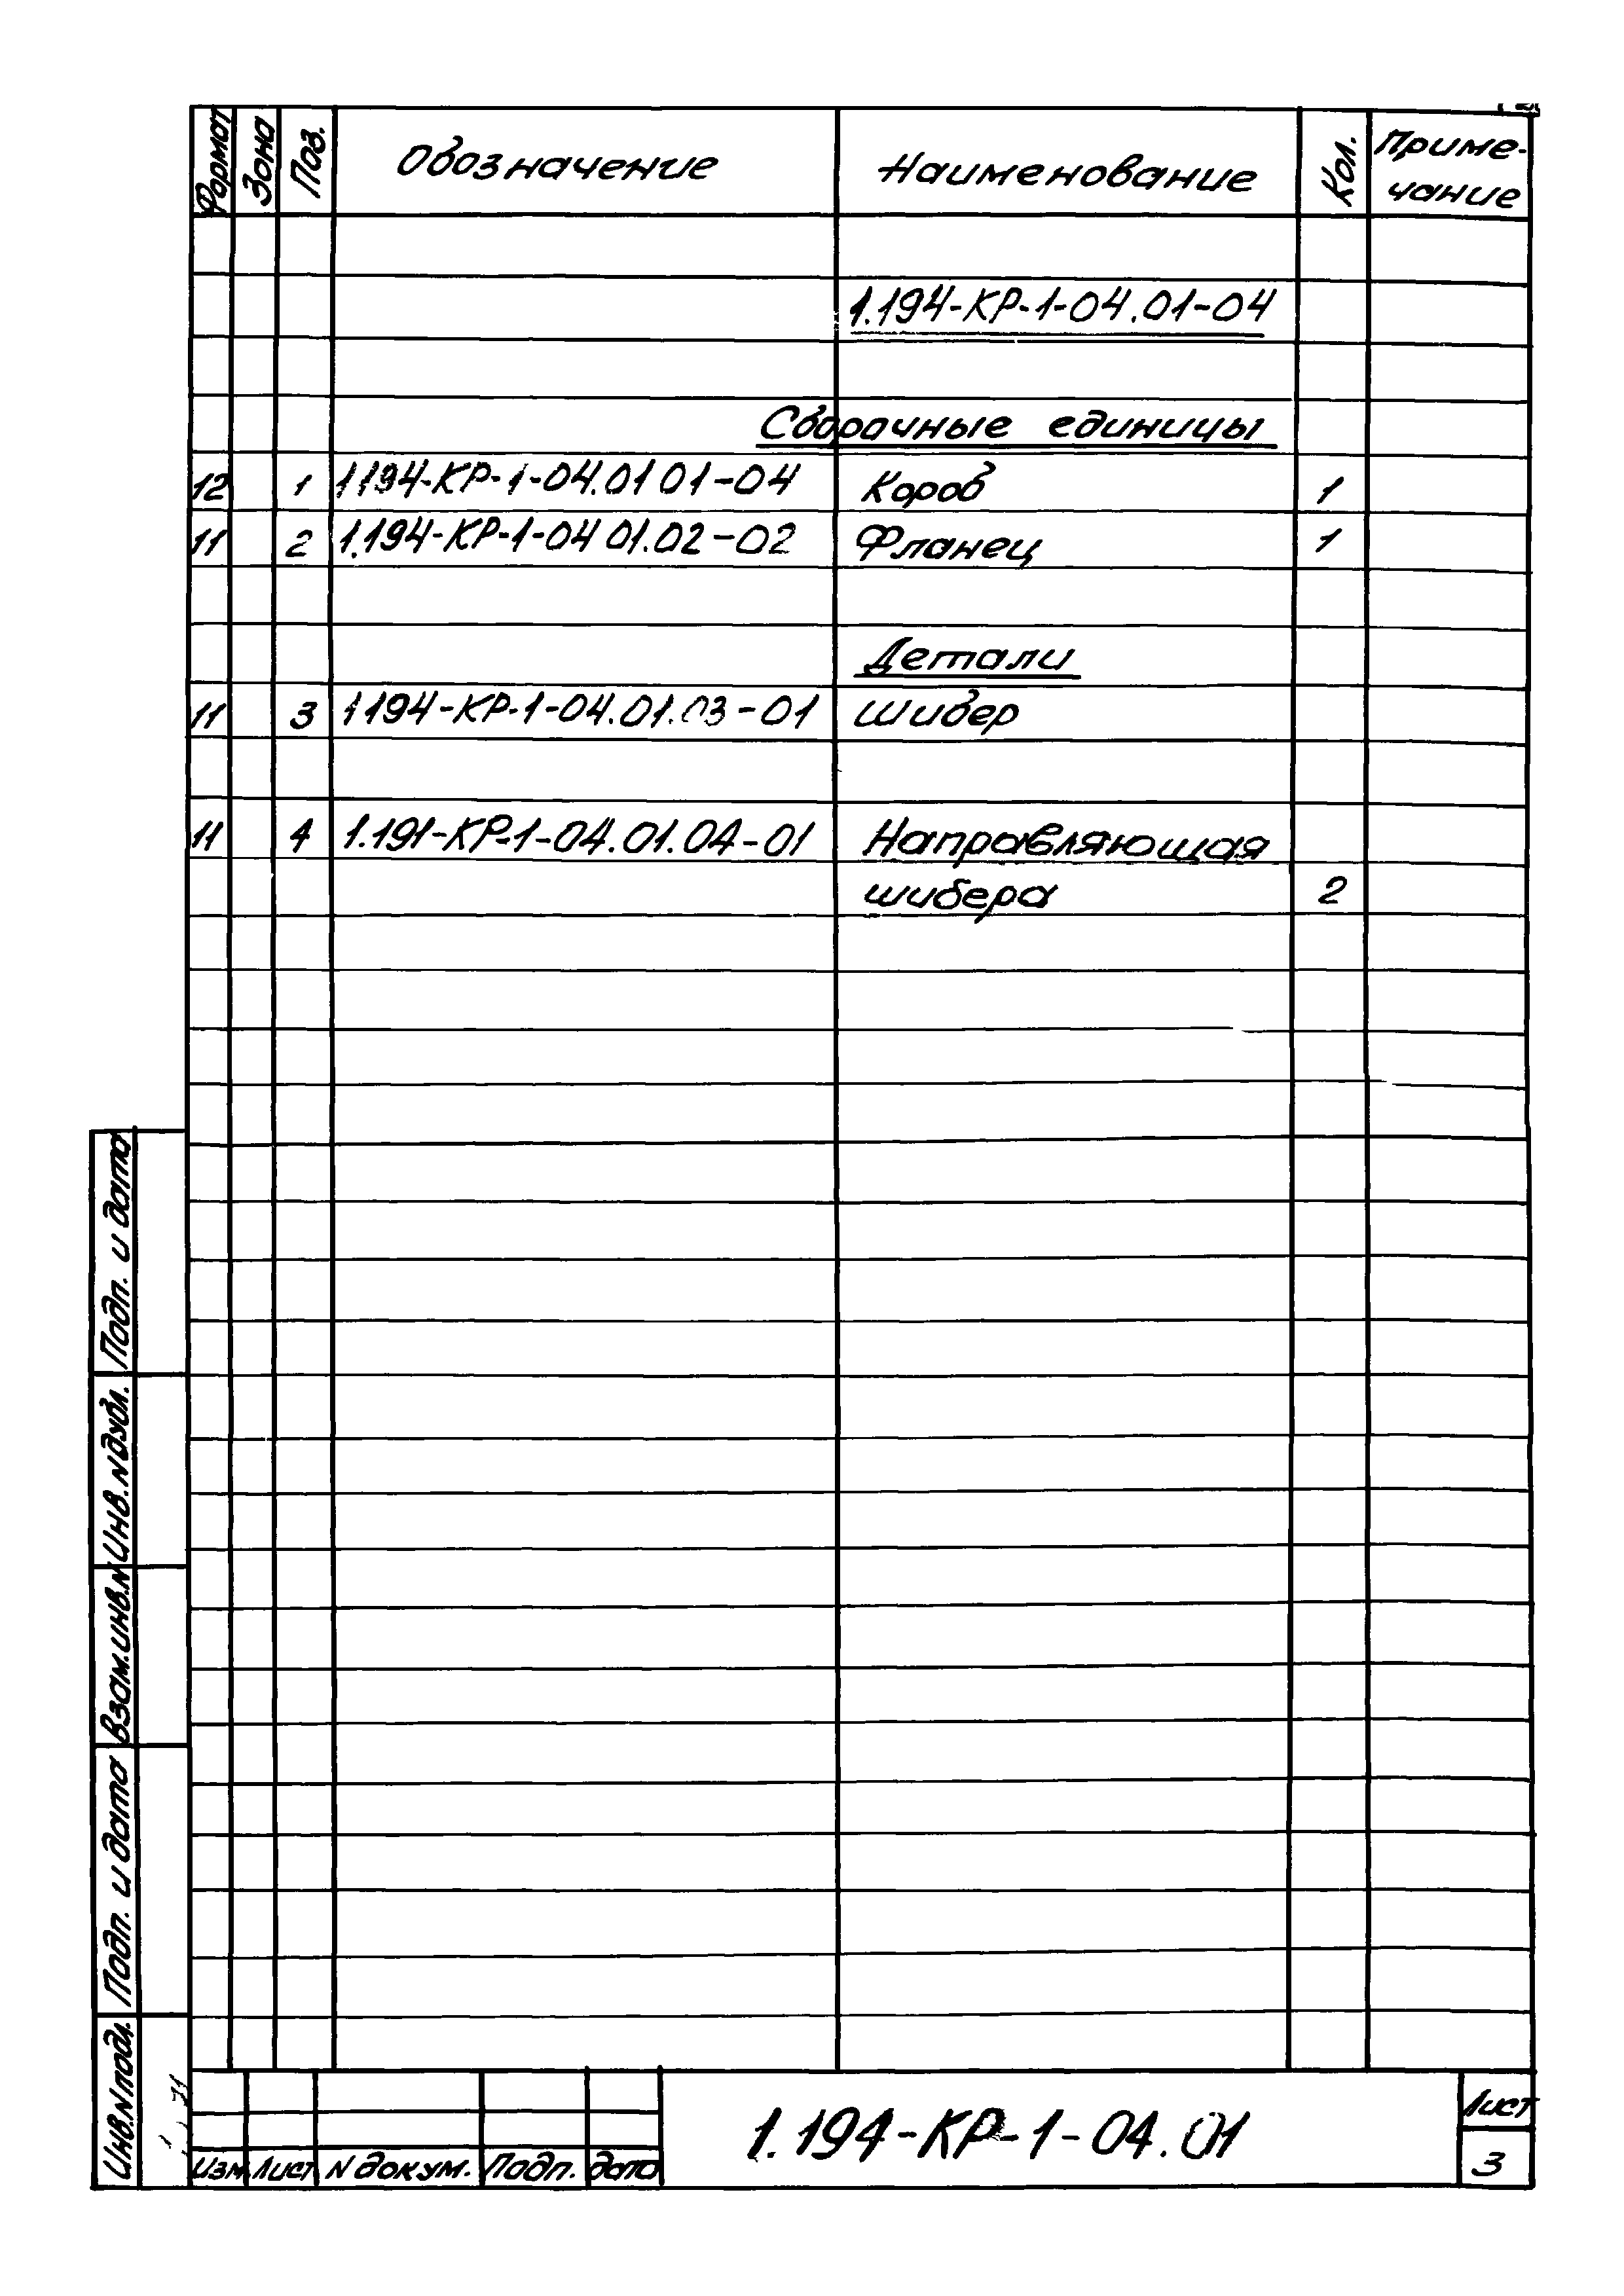 Формат Зона Поз. Обозначение Наименование Кол. Приме-
чание
1.194-КР-1-04.01-04
Сборочные единицы
12 1 1194-КР-1-04.01 01-04 Короб 1
11 2 1.194-КР-1-04 01.02-02 Фланец 1
Детали
11 3 1194-КР-1-04.01.03-01 Шибер
11 4 1.191-КР-1-04.01.04-01 Направляющая
шибера 2
Подп. и дата
Инв. N дубл.
Взам. инв. N
Подп. и дата
Инв. N подл.
Изм Лист N докум. Подп. дата
1.194-КР-1-04.01
Лист
3